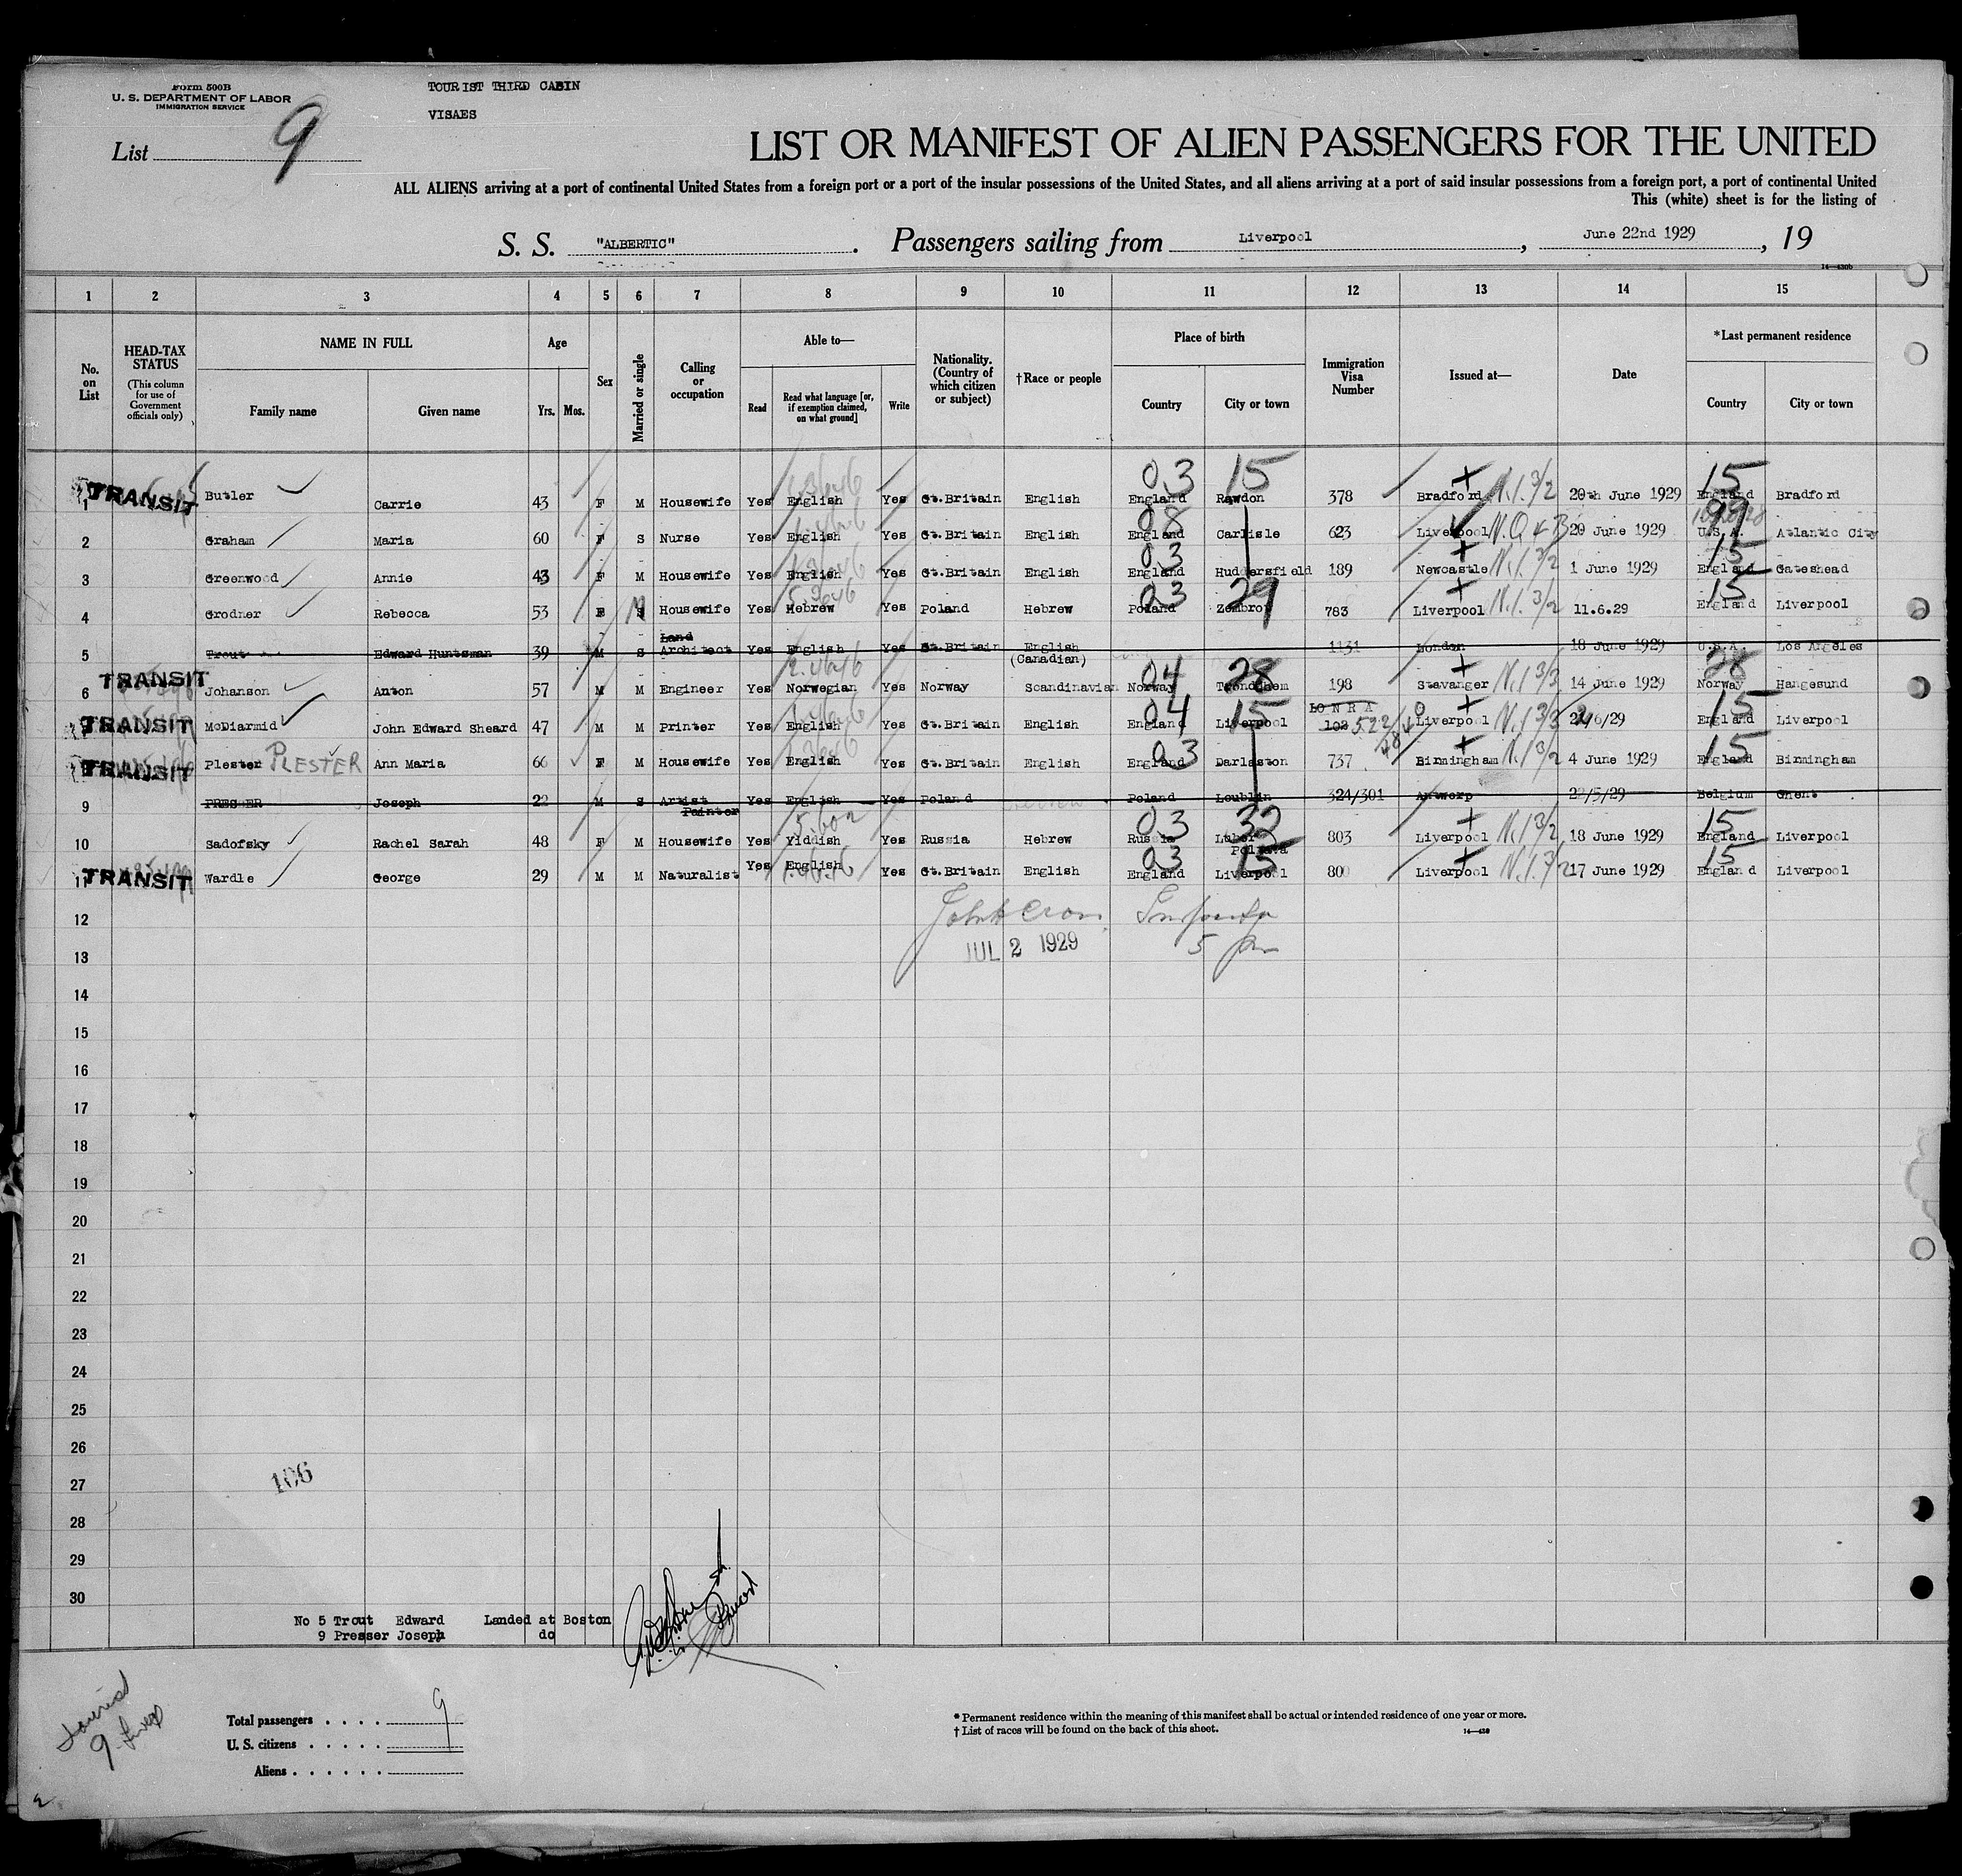 Form 500B
U. S. DEPARTMENT OF LABOR
IMMIGRATION SERVICE
TOURIST THIRD CABIN
VISAES
List 9
LIST OR MANIFEST OF ALIEN PASSENGERS FOR THE UNITED
ALL ALIENS arriving at a port of continental United States from a foreign port or a port of the insular possessions of the United States, and all aliens arriving at a port of said insular possessions from a foreign port, a port of continental United
This (white) sheet is for the listing of
S. S. "ALBERTIC". Passengers sailing from Liverpool, June 22nd 1929, 19
14—430b
1 2 3 4 5 6 7 8 9 10 11 12 13 14 15
No. on List
HEAD-TAX STATUS (This column for use of Government officials only)
NAME IN FULL
Family name Given name
Age
Yrs. Mos.
Sex
Married or single
Calling or occupation
Able to—
Read Read what language [or, if exemption claimed, on what ground] Write
Nationality. (Country of which citizen or subject)
†Race or people
Place of birth
Country City or town
Immigration Visa Number
Issued at—
Date
*Last permanent residence
Country City or town
03 15 15
1 TRANSIT Butler Carrie 43 F M Housewife Yes English Yes Gt.Britain English England Rawdon 378 Bradford N.I.3/2 20th June 1929 England Bradford
08 99
2 Graham Maria 60 F S Nurse Yes English Yes Gt.Britain English England Carlisle 623 Liverpool 20 June 1929 U.S.A. Atlantic City
03 15
3 Greenwood Annie 43 F M Housewife Yes English Yes Gt.Britain English England Huddersfield 189 Newcastle N.I.3/2 1 June 1929 England Gateshead
03 29 15
4 Grodner Rebecca 53 F M Housewife Yes Hebrew Yes Poland Hebrew Poland 783 Liverpool N.I.3/2 11.6.29 England Liverpool
5 Trout Edward Huntsman 39 M S Land Architect Yes English Yes Gt.Britain English (Canadian) 1131 London 18 June 1929 U.S.A. Los Angeles
04 28 28
6 TRANSIT Johanson Anton 57 M M Engineer Yes Norwegian Yes Norway Scandinavian Norway Trondghem 198 Stavanger N.I 3/3 14 June 1929 Norway Hangesund
04 15 15
TRANSIT McDiarmid John Edward Sheard 47 M M Printer Yes English Yes Gt.Britain English England Liverpool 102 Liverpool N.I 3/3 England Liverpool
03 15
TRANSIT Plester PLESTER Ann Maria 66 F M Housewife Yes English Yes Gt.Britain English England Darlaston 737 Birmingham N.I 3/2 4 June 1929 England Birmingham
9 PRESSER Joseph 22 M S Artist Painter Yes English Yes Poland Poland Loublin 324/301 Antwerp Belgium Ghent
03 32 15
10 Sadofsky Rachel Sarah 48 F M Housewife Yes Yiddish Yes Russia Hebrew Russia 803 Liverpool N.I 3/2 18 June 1929 England Liverpool
03 15 15
11 TRANSIT Wardle George 29 M M Naturalist Yes English Yes Gt.Britain English England Liverpool 800 Liverpool N.I.3/2 17 June 1929 England Liverpool
12
JUL 2 1929 5 pm
13
14
15
16
17
18
19
20
21
22
23
24
25
26
106
27
28
29
30
No 5 Trout Edward Landed at Boston
9 Presser Joseph do
Total passengers 9
U. S. citizens
Aliens
* Permanent residence within the meaning of this manifest shall be actual or intended residence of one year or more.
† List of races will be found on the back of this sheet.